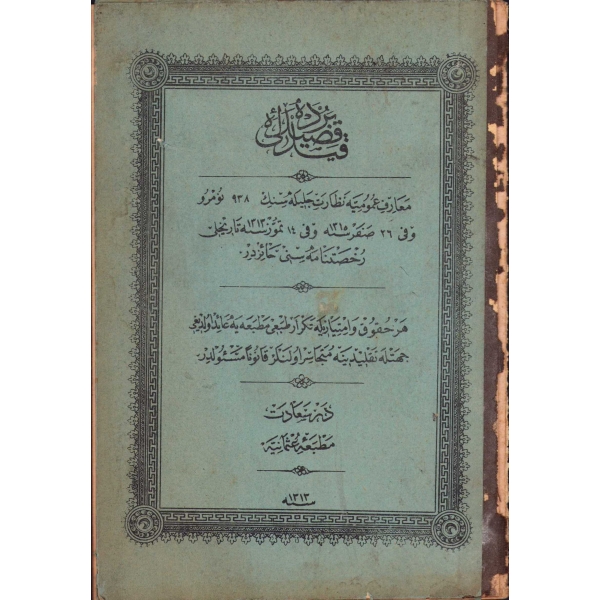 قصیدۀ بردۀ
معارف عمومیه نظارت جلیله‌سنك ٩٣٨ نومرو
وفی ٢٦ صفر سنه ١٣١٥ وفی ١٤ تموز سنه ١٣١٣ تاریخلی
رخصتنامه‌سنی حائزدر.
هر حقوق و امتیازیله تکرار طبعی مطبعه‌یه عاید اولدیغی
جهتله تقلیدینه متجاسر اولنلر قانونا مسئولدر.
درسعادت
مطبعۀ عثمانیه
سنه ١٣١٣